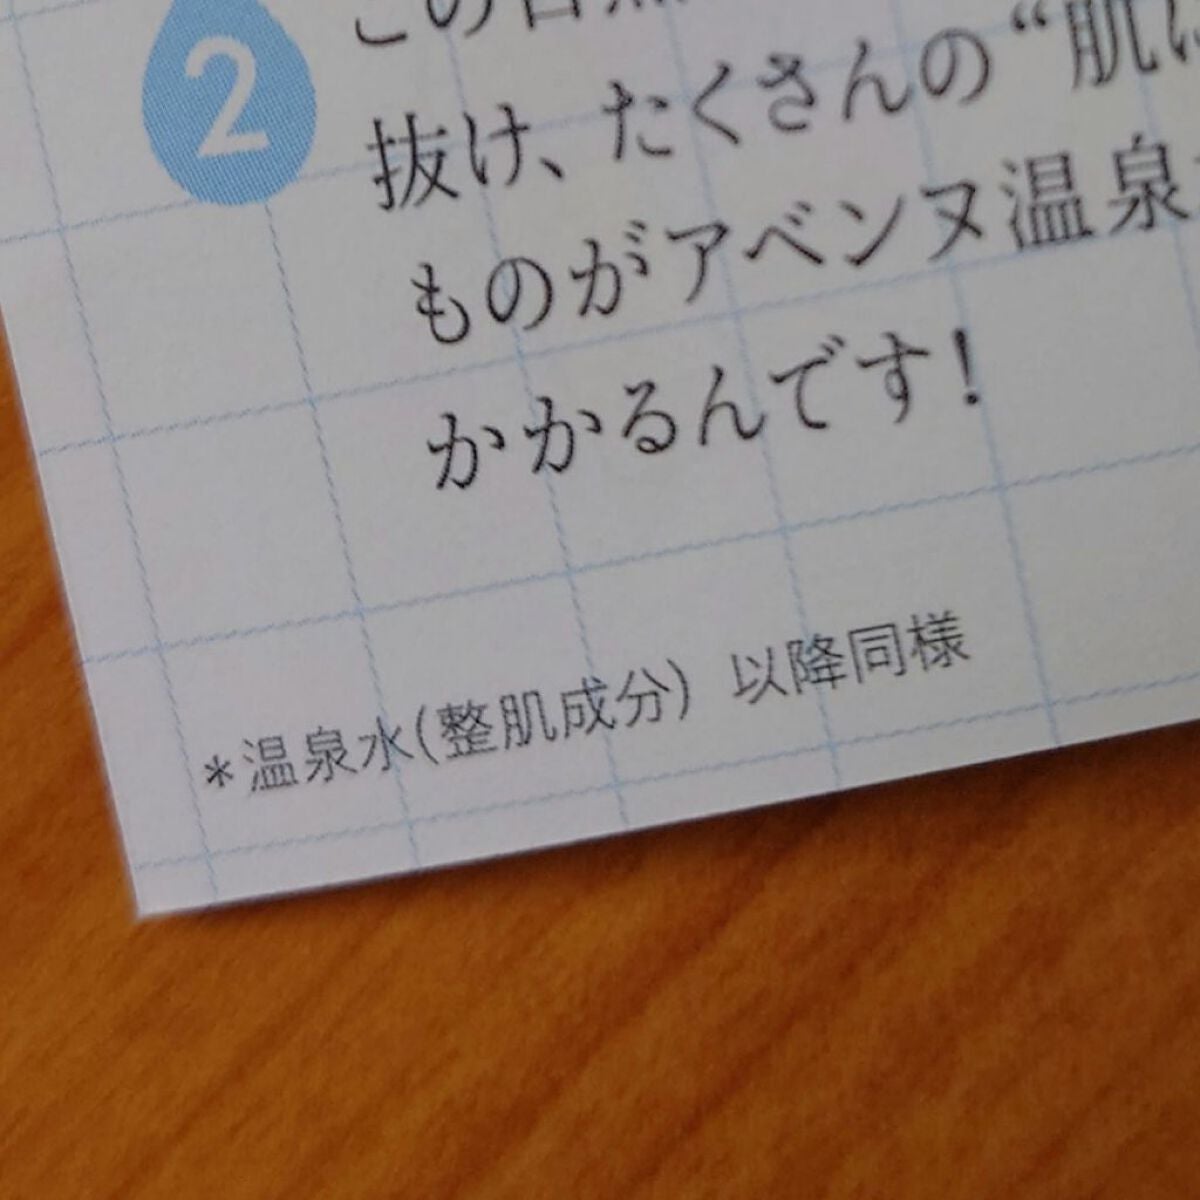 2
この自然
抜け、たくさんの“肌に
ものがアベンヌ温泉
かかるんです!
*温泉水(整肌成分) 以降同様